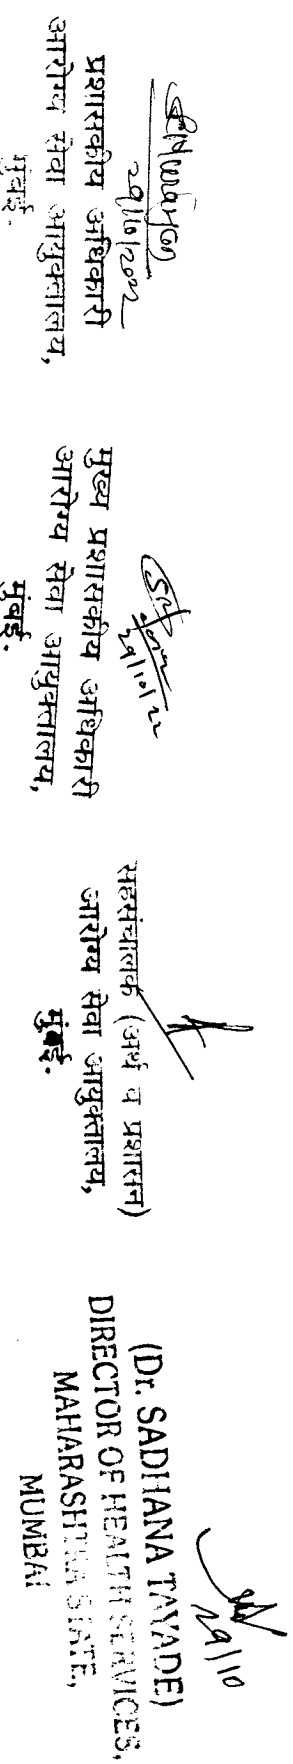 29/10/2022
प्रशासकीय अधिकारी
आरोग्य सेवा आयुक्तालय,
मुंबई.
29/10/22
मुख्य प्रशासकीय अधिकारी
आरोग्य सेवा आयुक्तालय,
मुंबई.
सहसंचालक (अर्थ व प्रशासन)
आरोग्य सेवा आयुक्तालय,
मुंबई.
29/10
(Dr. SADHANA TAYADE)
DIRECTOR OF HEALTH SERVICES,
MAHARASHTRA STATE,
MUMBAI